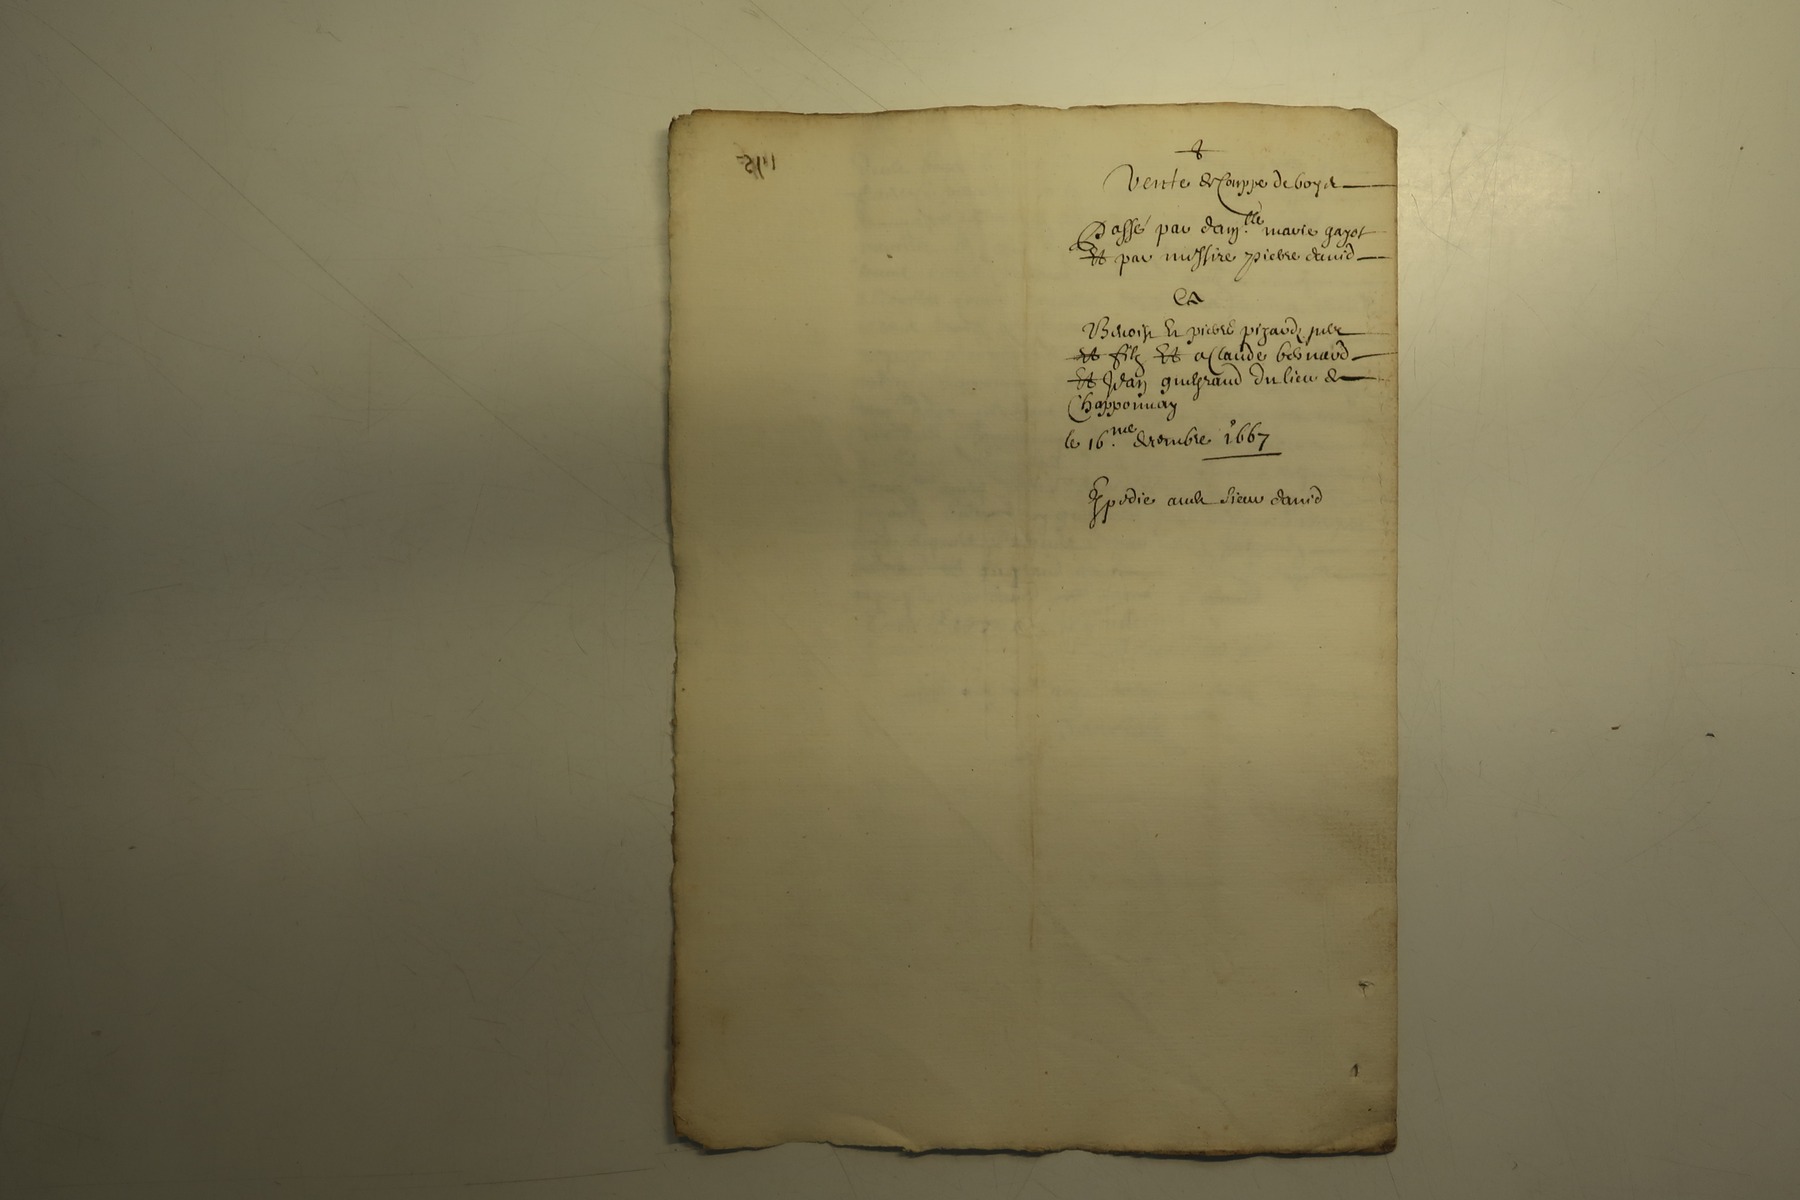 Vente de Couppe de boys
Passé par dam.lle marie gayot
Et par messire pierre david
Ea
Benoist Et pierre pizard pere
Et filz Et a Claude bernard
Et Jean du lieu de
Chapponnay
le 16.me decembre 1667
Expedie audt sieur david